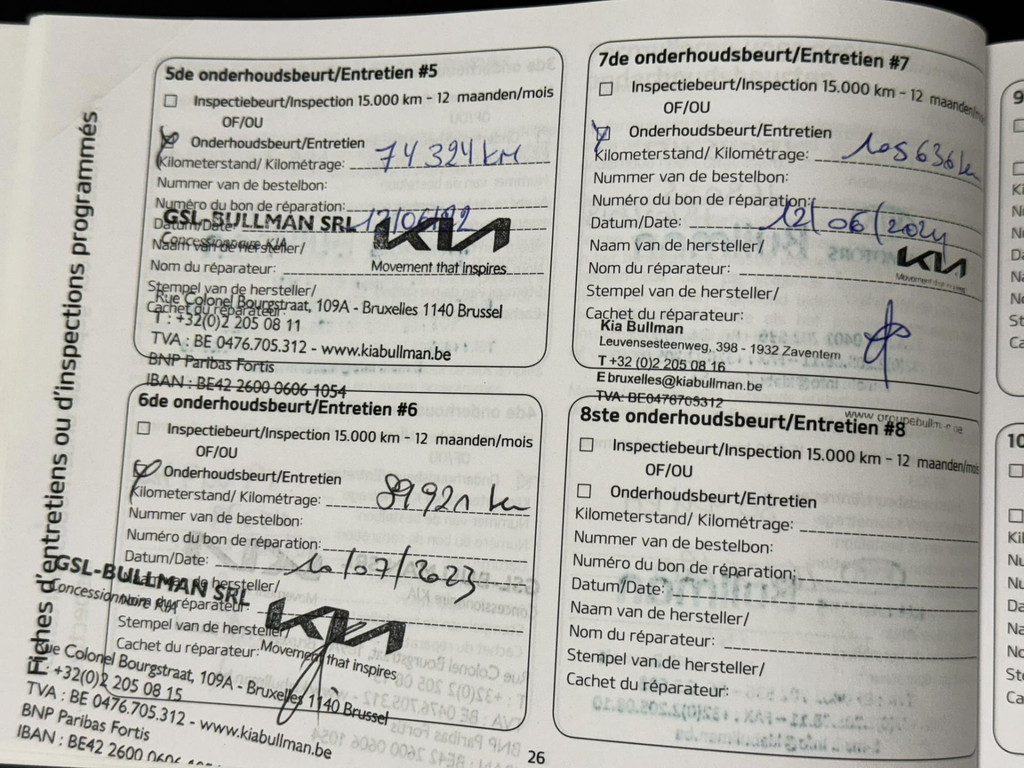 Fiches d'entretiens ou d'inspections programmés
5de onderhoudsbeurt/Entretien #5
Inspectiebeurt/Inspection 15.000 km - 12 maanden/mois
OF/OU
Onderhoudsbeurt/Entretien
Kilometerstand/ Kilométrage: 74324 KM
Nummer van de bestelbon:
Numéro du bon de réparation:
Datum/Date: 12/06/22
GSL-BULLMAN SRL
KIA
Concessionnaire KIA
Naam van de hersteller/
Movement that inspires
Nom du réparateur:
Stempel van de hersteller/
Cachet du réparateur:
Rue Colonel Bourgstraat, 109A - Bruxelles 1140 Brussel
T : +32(0)2 205 08 11
TVA : BE 0476.705.312 - www.kiabullman.be
BNP Paribas Fortis
IBAN : BE42 2600 0606 1054
6de onderhoudsbeurt/Entretien #6
Inspectiebeurt/Inspection 15.000 km - 12 maanden/mois
OF/OU
Onderhoudsbeurt/Entretien
Kilometerstand/ Kilométrage: 89921 km
Nummer van de bestelbon:
Numéro du bon de réparation:
Datum/Date: 10/07/2023
Naam van de hersteller/
GSL-BULLMAN SRL
KIA
Concessionnaire KIA
Nom du réparateur:
Stempel van de hersteller/
Cachet du réparateur:
Movement that inspires
Rue Colonel Bourgstraat, 109A - Bruxelles 1140 Brussel
T : +32(0)2 205 08 15
TVA : BE 0476.705.312 - www.kiabullman.be
BNP Paribas Fortis
IBAN : BE42 2600
7de onderhoudsbeurt/Entretien #7
Inspectiebeurt/Inspection 15.000 km - 12 maanden/mois
OF/OU
Onderhoudsbeurt/Entretien
Kilometerstand/ Kilométrage: 105636 km
Nummer van de bestelbon:
Numéro du bon de réparation:
Datum/Date: 12/06/2024
Naam van de hersteller/
KIA
Nom du réparateur:
Movement that inspires
Stempel van de hersteller/
Cachet du réparateur:
Kia Bullman
Leuvensesteenweg, 398 - 1932 Zaventem
T +32 (0)2 205 08 16
E bruxelles@kiabullman.be
TVA: BE0476705312
8ste onderhoudsbeurt/Entretien #8
Inspectiebeurt/Inspection 15.000 km - 12 maanden/mois
OF/OU
Onderhoudsbeurt/Entretien
Kilometerstand/ Kilométrage:
Nummer van de bestelbon:
Numéro du bon de réparation:
Datum/Date:
Naam van de hersteller/
Nom du réparateur:
Stempel van de hersteller/
Cachet du réparateur:
26